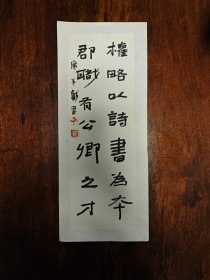 權略以詩書為本
郡職有公卿之才